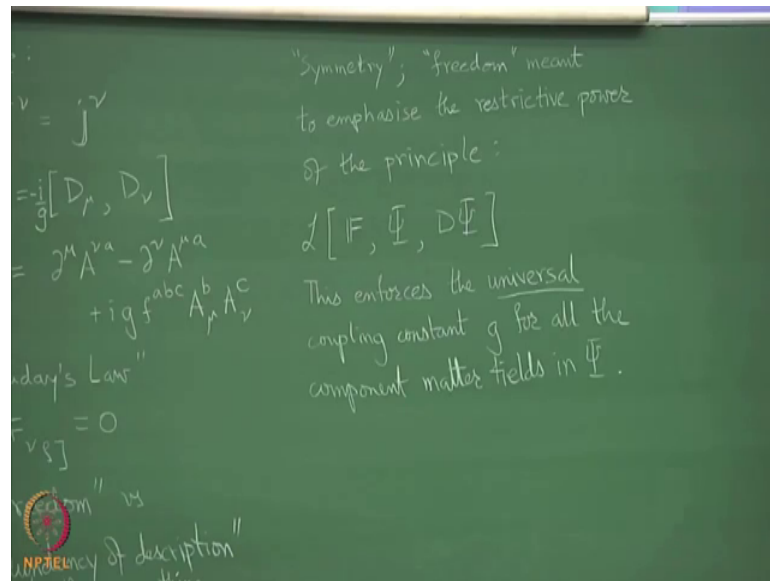 :
ν = j^ν
= -i/g [D_μ, D_ν]
= ∂^μ A^{νa} - ∂^ν A^{μa}
+ i g f^{abc} A^b_μ A^c_ν
aday's Law"
F_{νρ]} = 0
eedom" vs
undancy of description"
"Symmetry"; "freedom" meant
to emphasise the restrictive power
of the principle:
ℒ[𝔽, Ψ, DΨ]
This enforces the universal
coupling constant g for all the
component matter fields in Ψ.
NPTEL